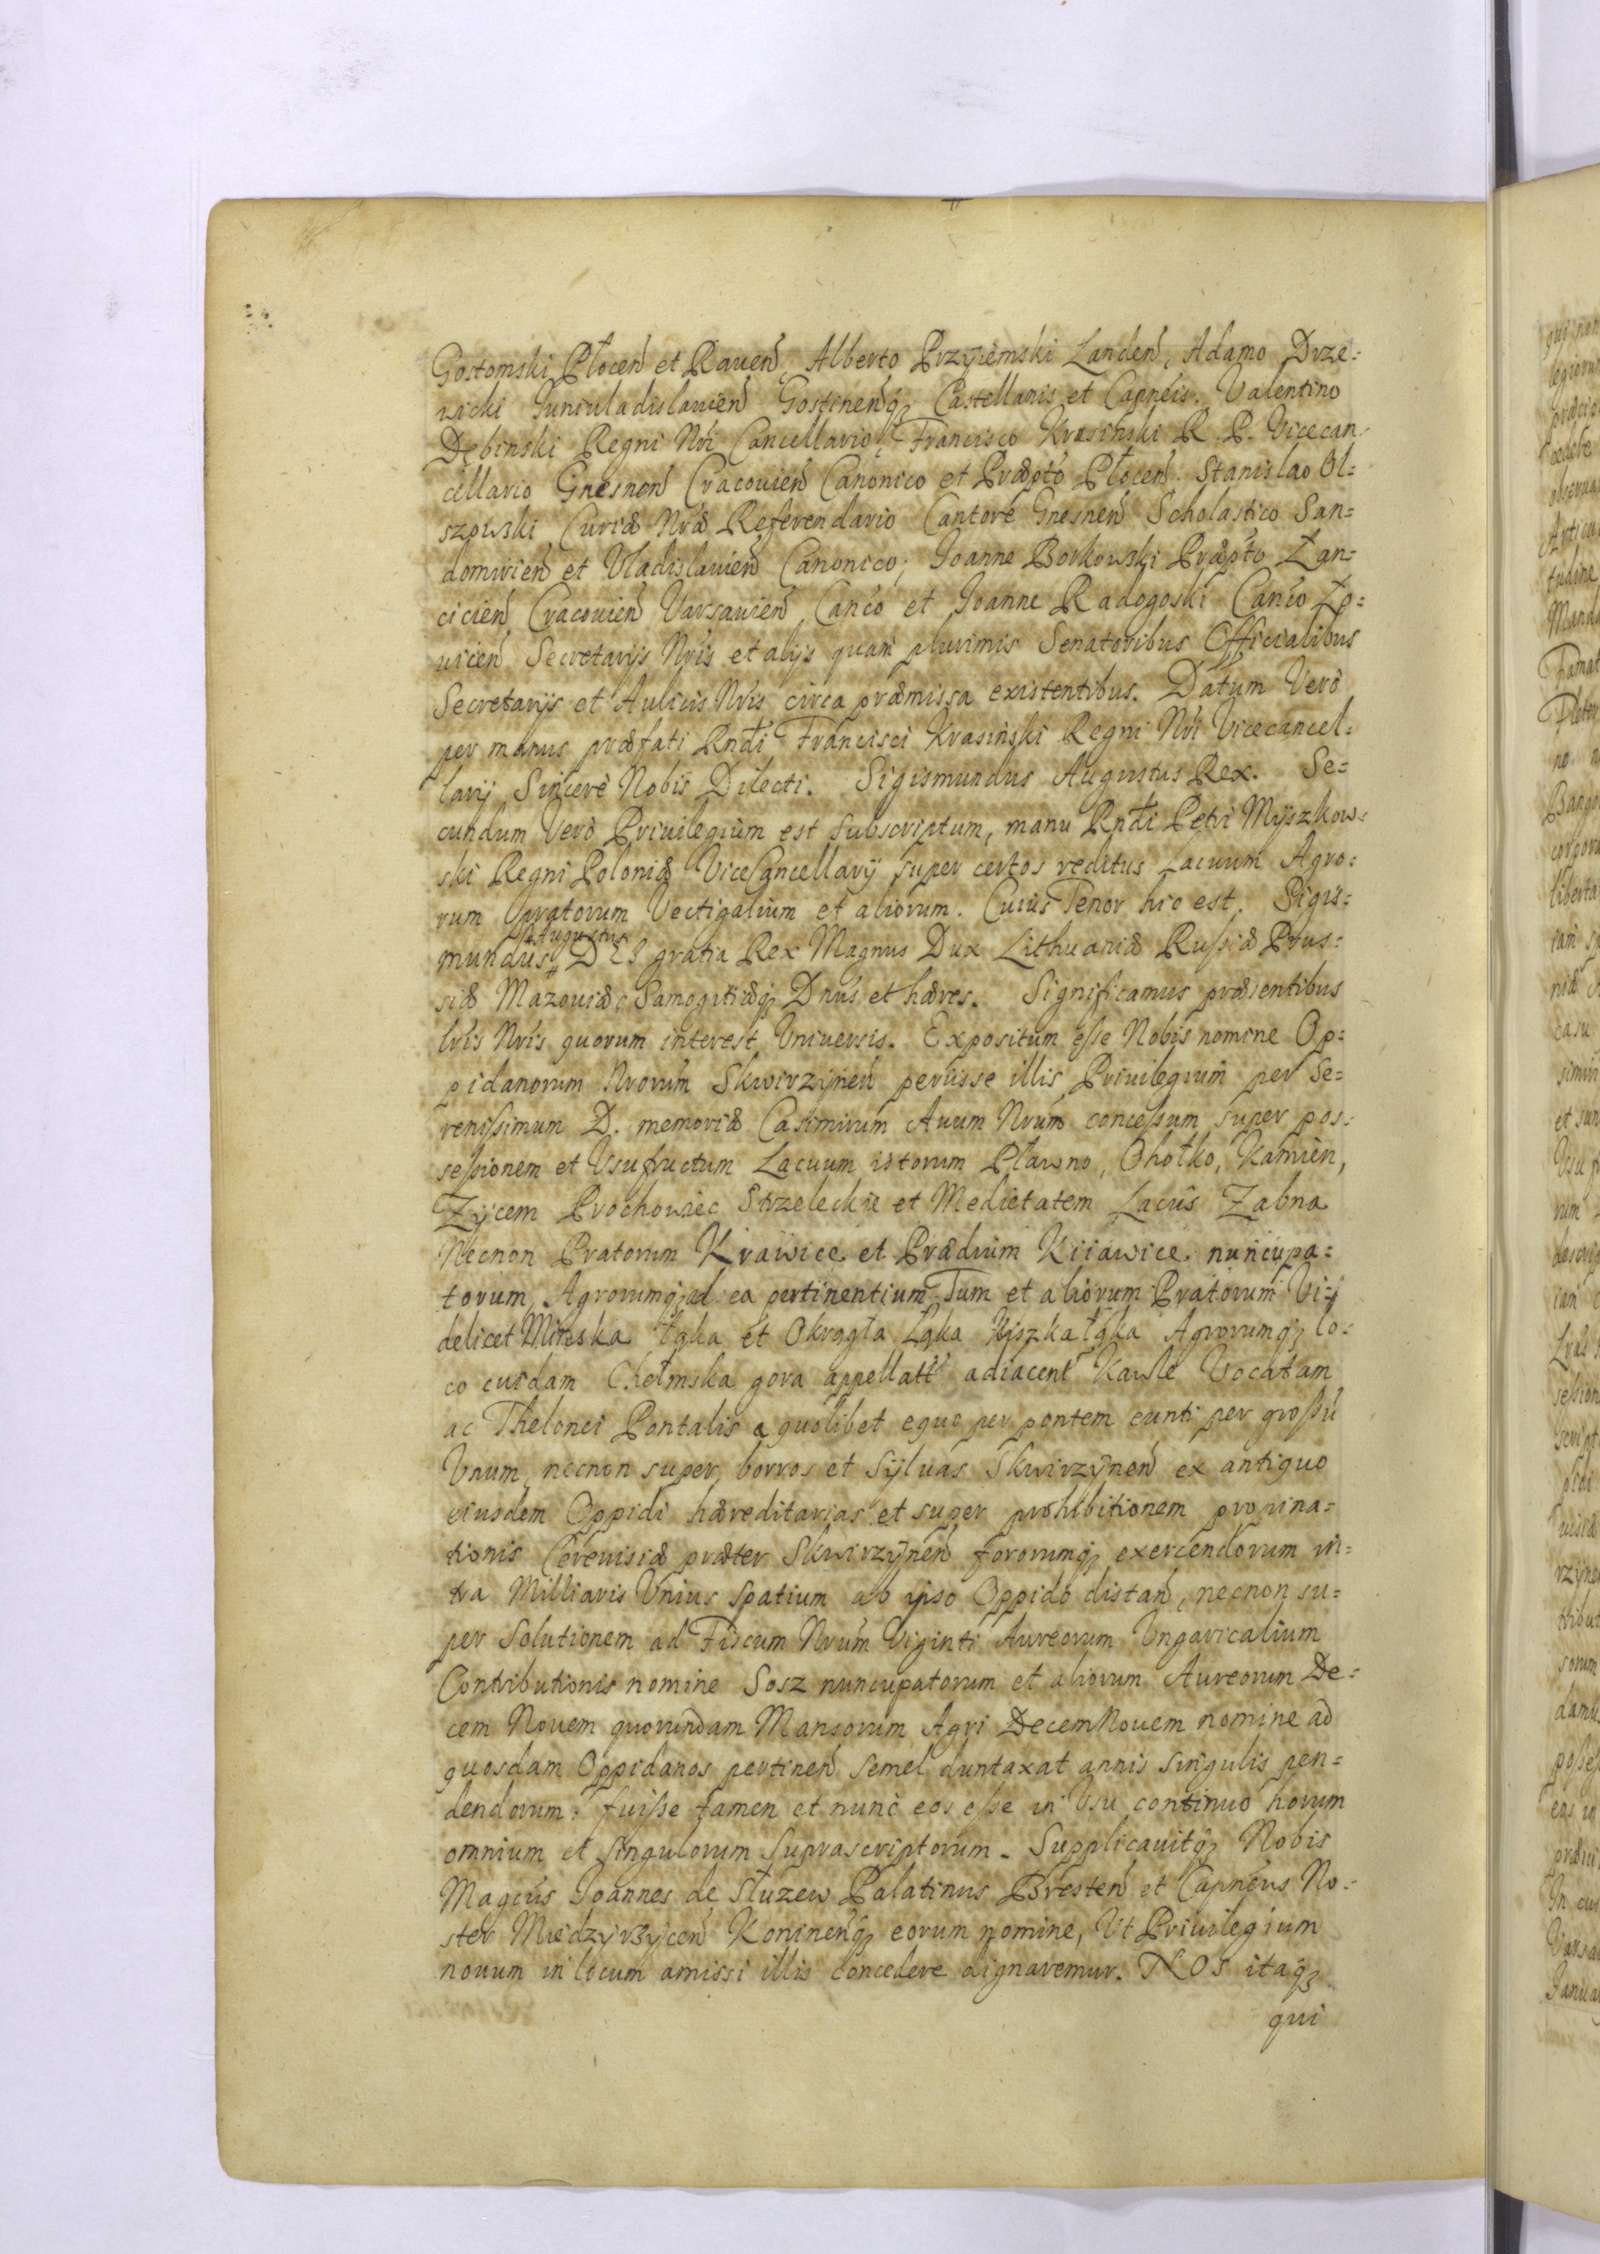 Gostomski Płocen et Raven, Alberto Przyiemski Landen, Adamo Drze=
wicki Juniuladislavien Gostinenq3 Castellanis et Capneis. Valentino
Dębinski Regni Nri Cancellario, Francisco Krasinski R. P. Vicecan=
cellario Gnesnen Cracovien Canonico et Præpto Płocen. Stanislao Ol=
szowski Curiæ Nræ Referendario Cantore Gnesnen Scholastico San=
domirien et Uladislavien Canonico; Joanne Borkowski Præpto Łan=
cicien Cracovien Varsavien Canco et Joanne Radogoski Canco Ło=
vicien Secretarijs Nris et alijs quam plurimis Senatoribus Officialibus
Secretarijs et Aulicis Nris circa præmissa existentibus. Datum Verò
per manus præfati Rndi Francisci Krasiński Regni Nri Vicecancel=
larij Sincerè Nobis Dilecti. Sigismundus Augustus Rex. Se=
cundum Verò Privilegium est subscriptum, manu Rndi Petri Myszkow=
ski Regni Poloniæ ViceCancellarij super certos reditus Lacuum Agro=
rum Pratorum Vectigalium et aliorum. Cuius Tenor hic est. Sigis=
mundus Augustus DEI gratia Rex Magnus Dux Lithuaniæ Russiæ Prus=
siæ Mazoviæ Samogitiæq3 Dnus et hæres. Significamus præsentibus
lris Nris quorum interest Universis. Expositum esse Nobis nomine Op=
pidanorum Nrorum Skwirzynen periisse illis Privilegium per Se=
renissimum D. memoriæ Casimirum Avum Nrum concessum super pos=
sessionem et Usufructum Lacuum istorum Pławno, Chołko, Kamien,
Zycem Prochowiec Strzeleckie et Medietatem Lacûs Zabna
Necnon Pratorum Kraiwice et Prædium Kiiawice nuncupa=
torum, Agrorumq3 ad ea pertinentium Tum et aliorum Pratorum Vi=
delicet Minska Łąka et Okrągła Łąka Kiszka łąka Agrorumq3 lo=
co cuidam Chełmska gora appellato adiacent Kawle Vocatam
ac Thelonei Pontalis a quolibet equo per pontem eunti per grossu
Unum, necnon super borros et Sylvas Skwirzynen ex antiquo
eiusdem Oppidi hæreditarias et super prohibitionem propina=
tionis Cerevisiæ præter Skwirzynen fororumq3 exercendorum in=
tra Milliaris Unius spatium ab ipso Oppido distan, necnon su=
per Solutionem ad Fiscum Nrum Viginti Aureorum Ungaricalium
Contributionis nomine Sosz nuncupatorum et aliorum Aureorum De=
cem Novem quorundam Mansorum Agri DecemNovem nomine ad
quosdam Oppidanos pertinen semel duntaxat annis singulis pen=
dendorum: fuisse tamen et nunc eos esse in Usu continuo horum
omnium et singulorum Suprascriptorum. Supplicavitq3 Nobis
Magcus Joannes de Służew Palatinus Bresten et Capneus No=
ster Miedzyrzycen Koninenq3 eorum nomine, Ut Privilegium
novum in locum amissi illis concedere dignaremur. NOS itaq3
qui